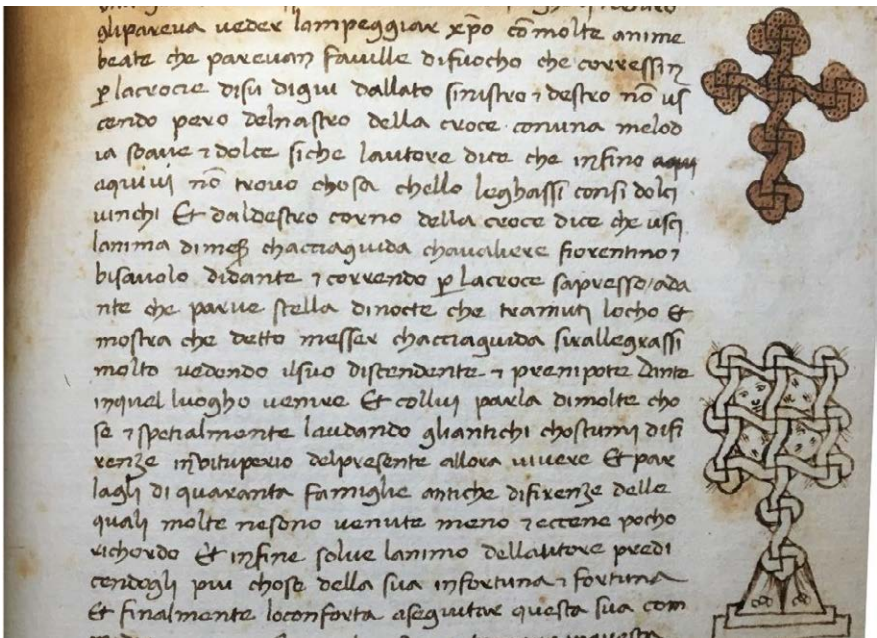 gli pareva veder lampeggiar xp̄o cō molte anime
beate che parevan faville di fuocho che corressin
p̲ la crocie di su di giu dallato sinistro ⁊ destro nō us
cendo pero del nastro della croce con una melod
ia soave ⁊ dolce si che lautore dice che infino
a qui vi nō trovo chosa chello leghassi con si dolci
vinchi Et dal destro corno della croce dice che usci
lanima di mes̄ chacciaguida chavaliere fiorentino ⁊
bisavolo di dante ⁊ correndo p̲ la croce sapresso a da
nte che parve stella di nocte che tramuti locho Et
mostra che detto messer chacciaguida si rallegrassi
molto vedendo il suo discendente ⁊ pronipote Dante
in quel luogho venire Et collui parla di molte cho
se ⁊ spetialmente laudando gli antichi chostumi di fi
renze in vituperio del presente allora vivere Et par
lagli di quaranta famiglie antiche di firenze delle
quali molte ne sono venute meno ⁊ eccene pocho
richordo Et infine solve lanimo dellautore predi
cendogli piu chose della sua infortuna ⁊ fortuna
Et finalmente lo conforta a seguitar questa sua com